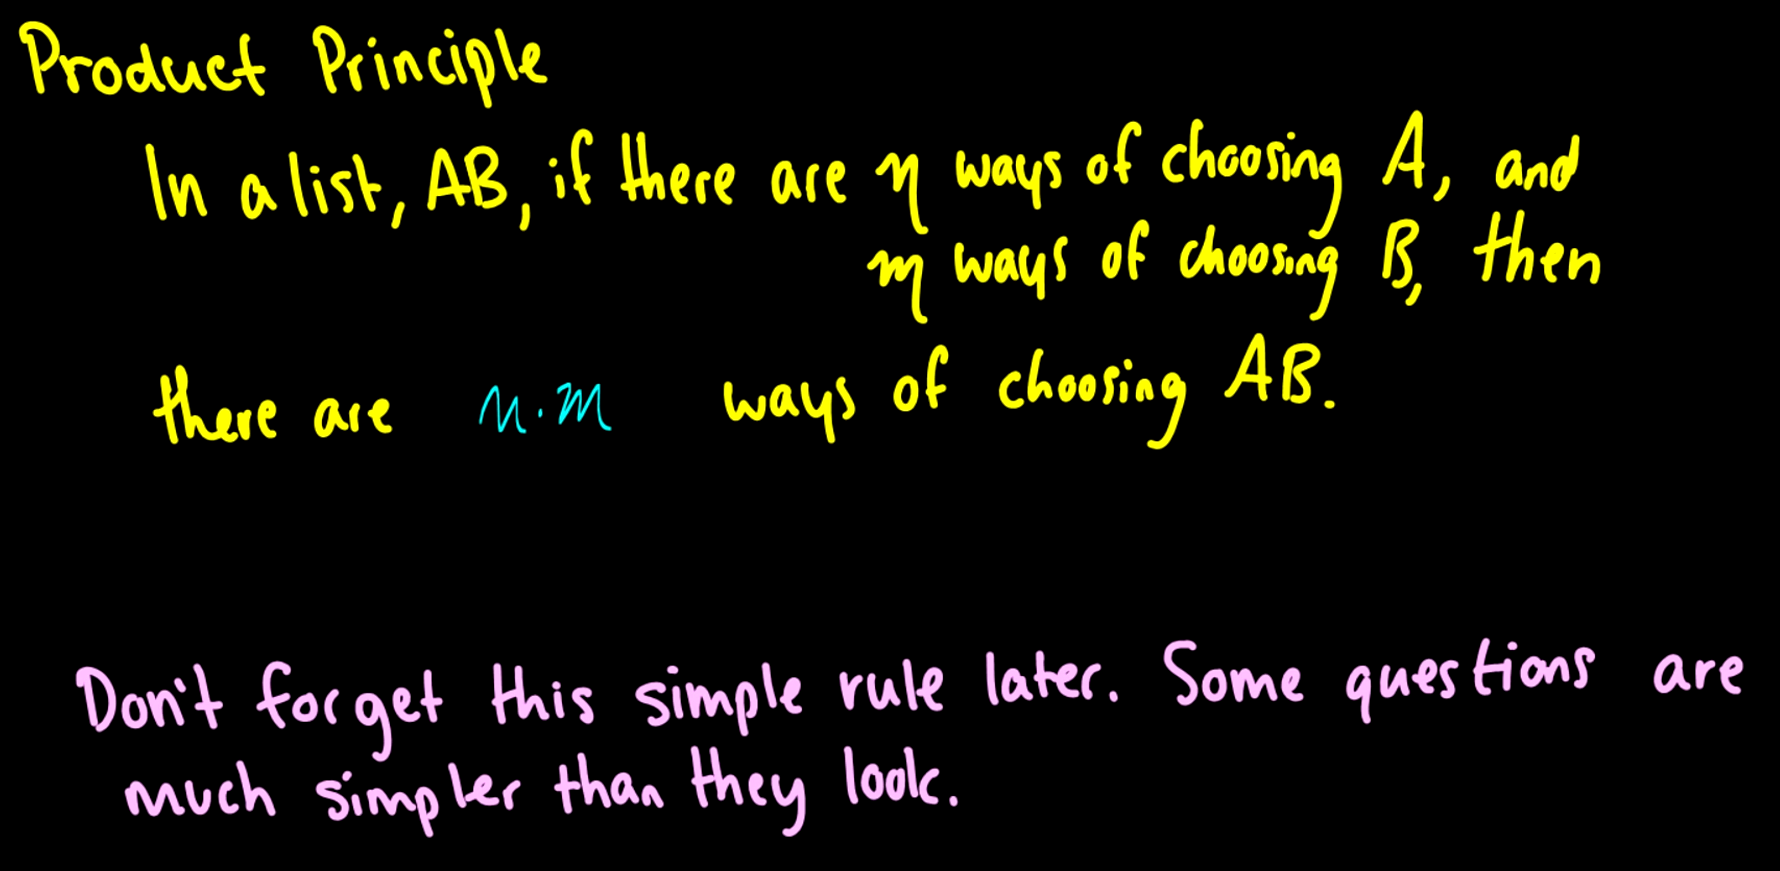 Product Principle
In a list, AB, if there are n ways of choosing A, and
m ways of choosing B, then
there are n·m ways of choosing AB.
Don't forget this simple rule later. Some questions are
much simpler than they look.